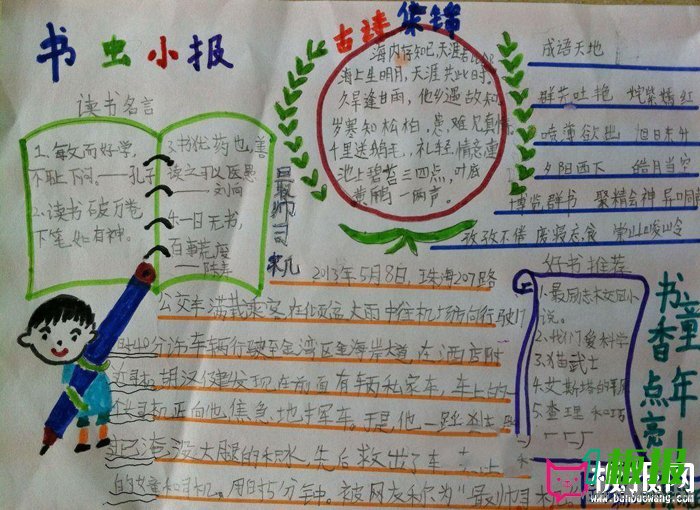 书虫小报
读书名言
1.敏而好学，
不耻下问。——孔子
2.读书破万卷
下笔如有神。
3.书犹药也，善
读之可以医愚
——刘向
4.一日无书，
百事荒废
——陈寿
古诗集锦
海内存知己，天涯若比邻
海上生明月，天涯共此时。
久旱逢甘雨，他乡遇故知
岁寒知松柏，患难见真情
千里送鹅毛，礼轻情意重
池上碧苔三四点，叶底
黄鹂一两声。
成语天地
群芳吐艳 姹紫嫣红
喷薄欲出 旭日东升
夕阳西下 皓月当空
博览群书 聚精会神
孜孜不倦 废寝忘食 崇山峻岭
好书推荐
1.最励志木交园小
说。
2.我们爱科学
3.猫武士
4.艾斯塔的
5.查理和巧
最帅司机
2013年5月8日，珠海207路
公交车满载乘客在倾盆大雨中往机场方向行驶
分许，车辆行驶至金湾区金海岸大道，在酒店附
近司机胡汉仔发现在前面有辆私家车，车上的
司机正向他焦急地挥车。于是，他一
淹没大腿的积水，先后救出了车
的女童和司机。用时5分钟。被网友称为"最帅司机
书香点亮
童年